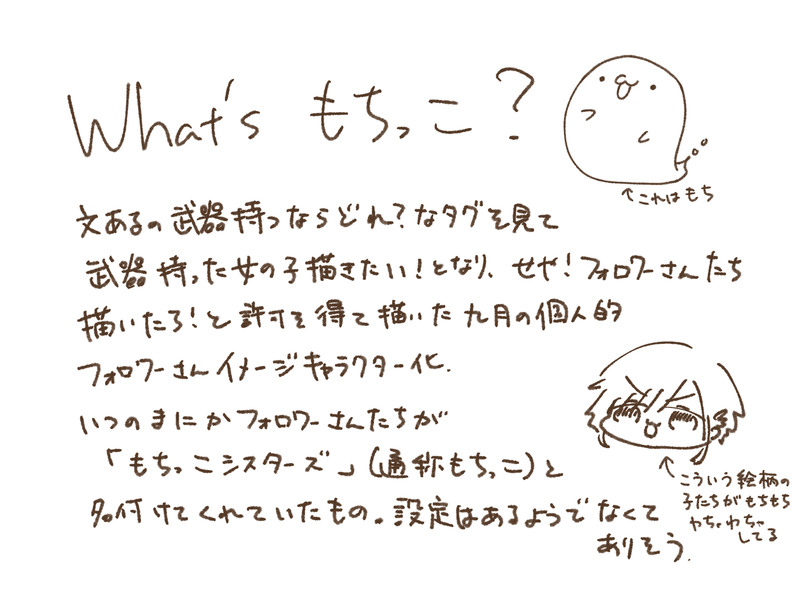 What's もちっこ?
↑これはもち
文あるの武器持つならどれ?なタグを見て
武器持った女の子描きたい!となり、せや!フォロワーさんたち
描いたろ!と許可を得て描いた九月の個人的
フォロワーさんイメージキャラクター化.
いつのまにかフォロワーさんたちが
「もちっこシスターズ」(通称もちっこ)と
名付けてくれていたもの。設定はあるようでなくて
ありそう.
↑こういう絵柄の
子たちがもちもち
わちゃわちゃ
してる